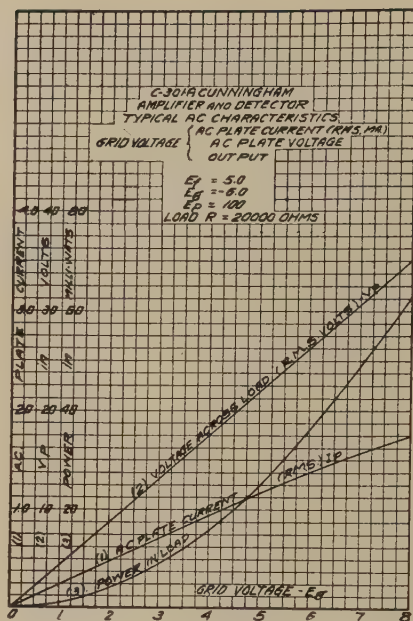 C-301-A CUNNINGHAM
AMPLIFIER AND DETECTOR
TYPICAL AC CHARACTERISTICS
GRID VOLTAGE { AC PLATE CURRENT (RMS, MA)
AC PLATE VOLTAGE
OUTPUT
Ef = 5.0
Eg = -6.0
Ep = 100
LOAD R = 20000 OHMS
4.0 40 80
3.0 30 60
2.0 20 40
1.0 10 20
(1) A.C. PLATE CURRENT
(2) VP IN VOLTS
(3) POWER IN MILLI-WATTS
(2) VOLTAGE ACROSS LOAD (R.M.S. VOLTS)-VP
(1) A.C. PLATE CURRENT (RMS) IP
(3) POWER IN LOAD
GRID VOLTAGE - Eg
0 1 2 3 4 5 6 7 8